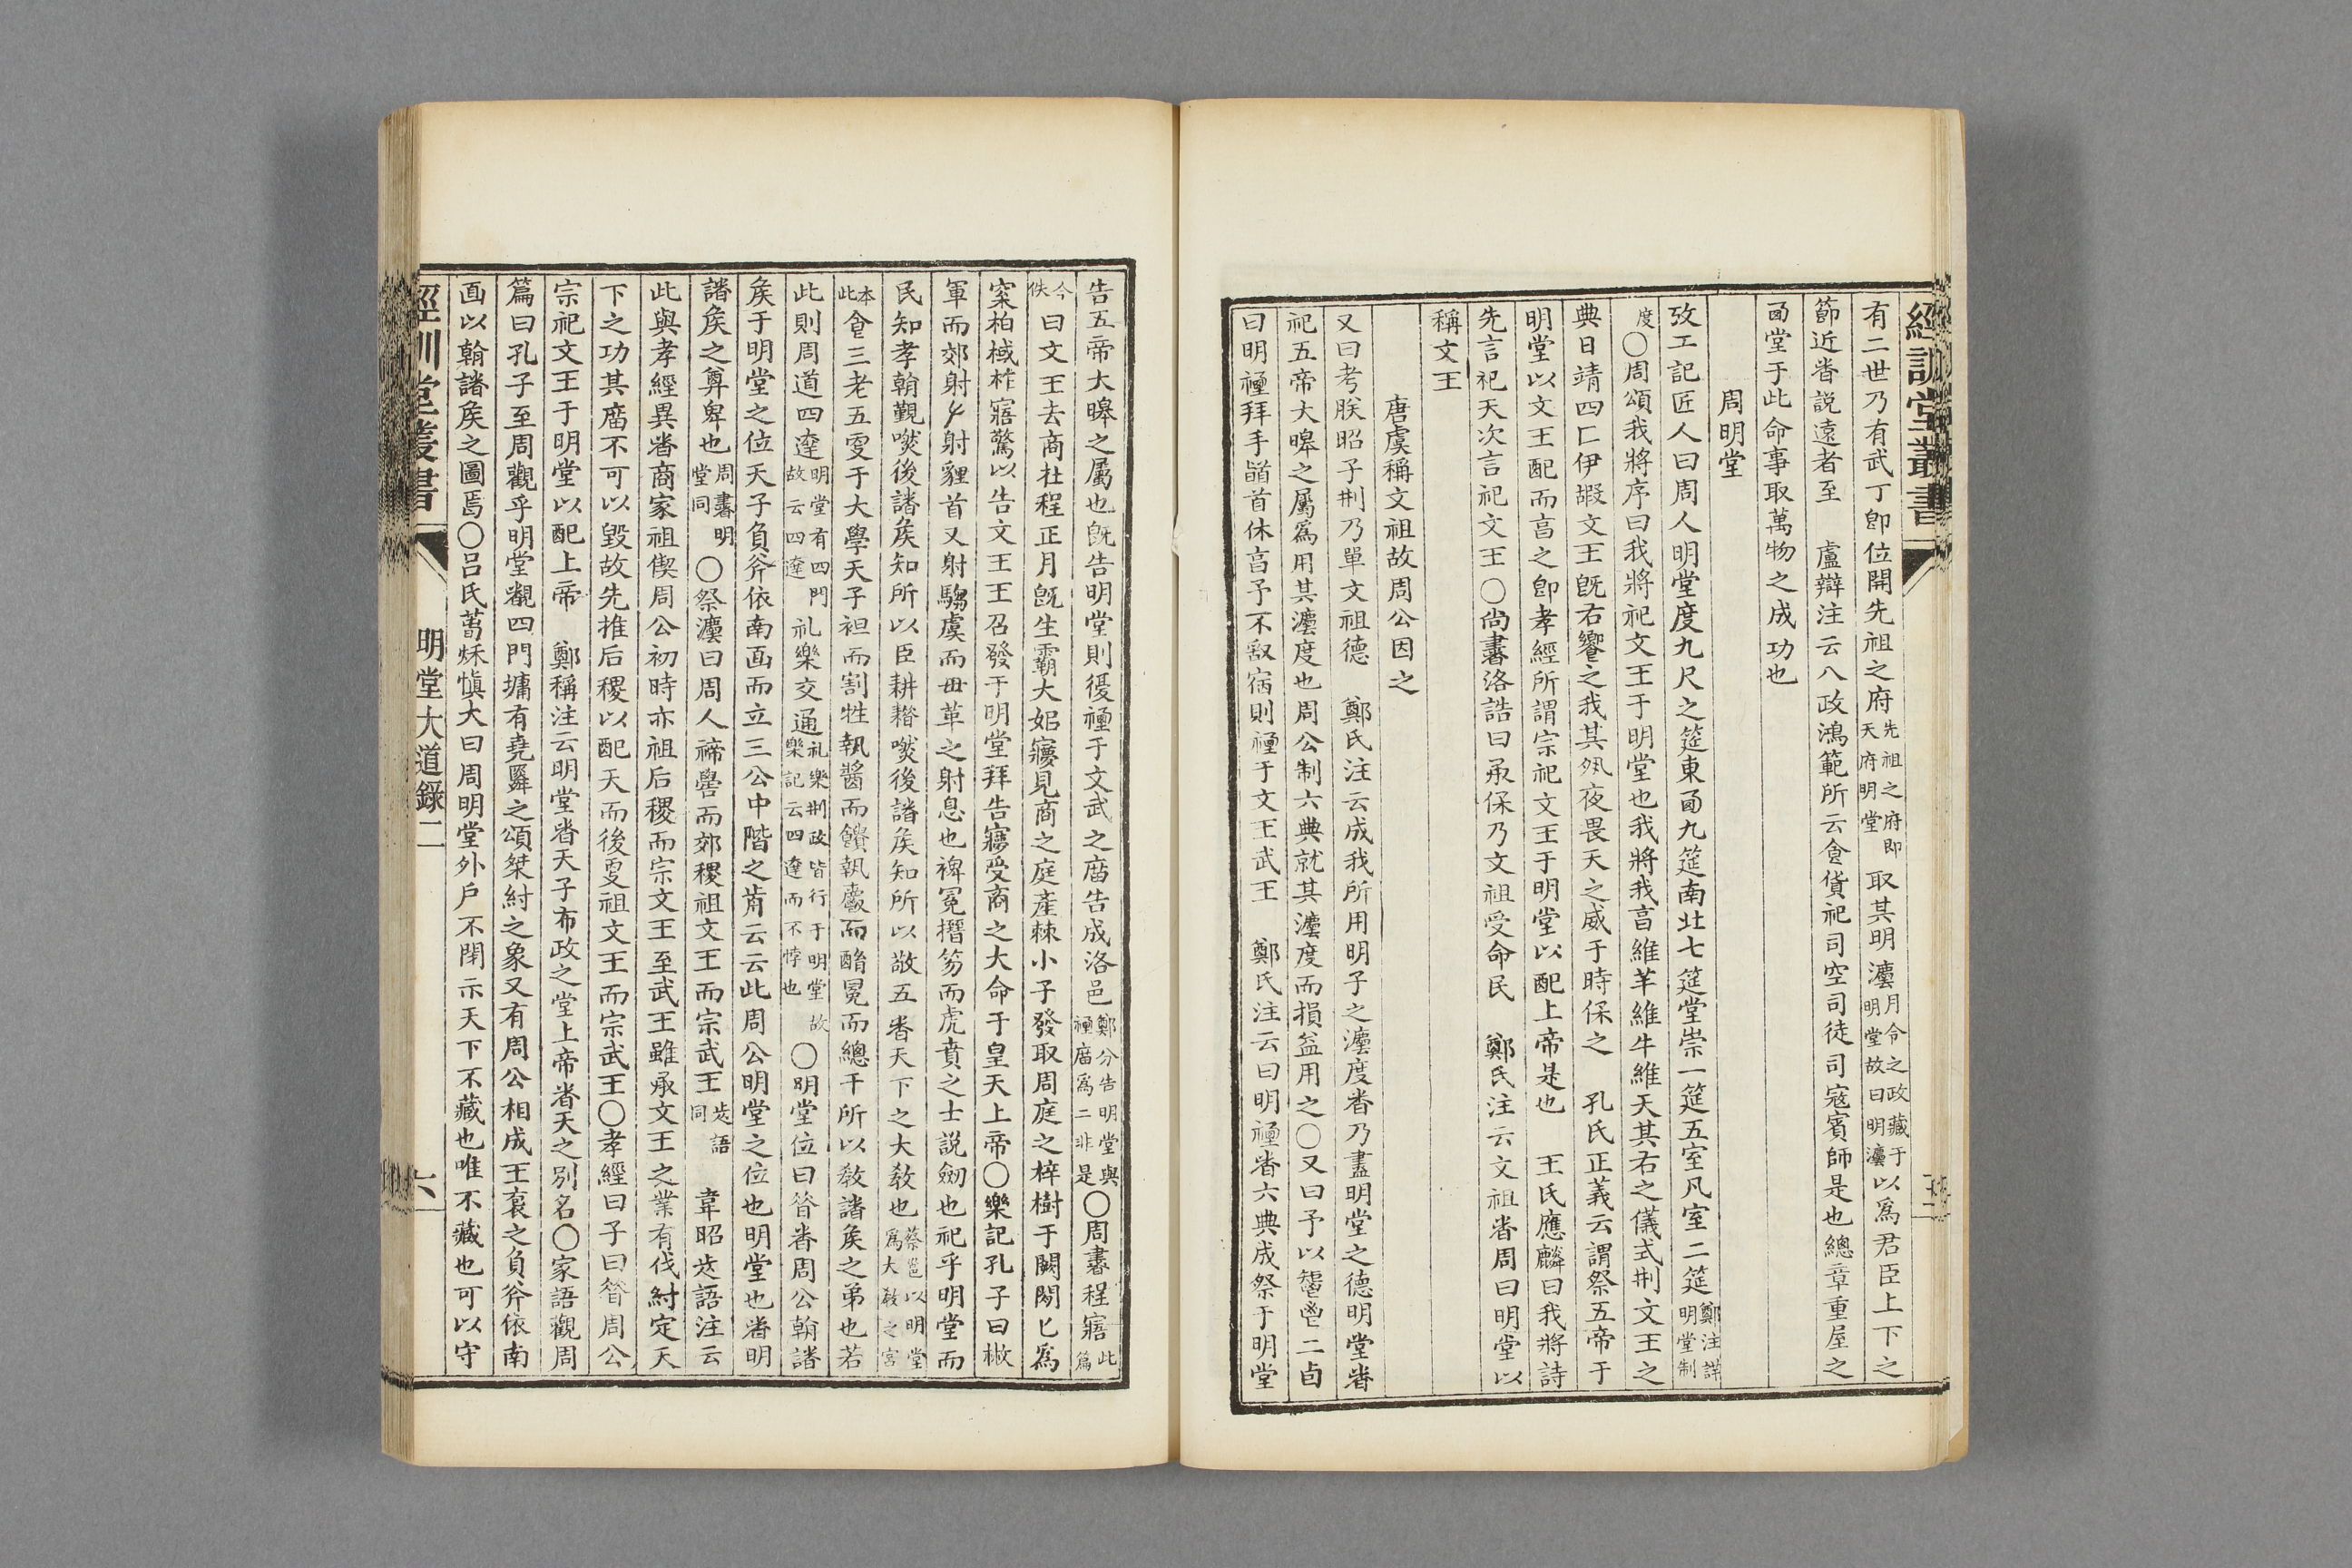 經訓堂叢書
有二世乃有武丁卽位開先祖之府先祖之府卽天府明堂取其明灋月令之政藏于明堂故曰明灋以爲君臣上下之
節近者説遠者至　盧辯注云八政鴻範所云食貨祀司空司徒司寇賓師是也總章重屋之
西堂于此命事取萬物之成功也
周明堂
攷工記匠人曰周人明堂度九尺之筵東西九筵南北七筵堂崇一筵五室凡室二筵鄭注詳明堂制
度〇周頌我將序曰我將祀文王于明堂也我將我亯維羊維牛維天其右之儀式㓝文王之
典日靖四匚伊嘏文王旣右饗之我其夙夜畏天之威于時保之　孔氏正義云謂祭五帝于
明堂以文王配而亯之卽孝經所謂宗祀文王于明堂以配上帝是也　王氏應麟曰我將詩
先言祀天次言祀文王〇尚書洛誥曰承保乃文祖受命民　鄭氏注云文祖者周曰明堂以
稱文王
唐虞稱文祖故周公因之
又曰考朕昭子㓝乃單文祖德　鄭氏注云成我所用明子之灋度者乃盡明堂之德明堂者
祀五帝大皞之屬爲用其灋度也周公制六典就其灋度而損益用之〇又曰予以秬鬯二卣
曰明禋拜手𩒨首休亯予不敢宿則禋于文王武王　鄭氏注云曰明禋者六典成祭于明堂
告五帝大皞之屬也旣告明堂則復禋于文武之庿告成洛邑鄭分告明堂與禋庿爲二非是〇周書程寤此篇
今佚曰文王去商社程正月旣生霸大姒寱見商之庭產棘小子發取周庭之梓樹于闕閒匕爲
松柏棫柞寤驚以告文王王召發于明堂拜告寱受商之大命于皇天上帝〇樂記孔子曰㪔
軍而郊射𠂇射貍首又射騶虞而毌革之射息也裨冕搢笏而虎賁之士説劒也祀乎明堂而
民知孝朝覲然後諸矦知所以臣耕耤然後諸矦知所以敬五者天下之大敎也蔡邕以明堂爲大敎之宮
本此食三老五叜于大學天子袒而割牲執醬而饋執𣝣而酳冕而總干所以敎諸矦之弟也若
此則周道四達明堂有四門故云四達礼樂交通礼樂㓝政皆行于明堂故樂記云四達而不悖也〇明堂位曰昔者周公朝諸
矦于明堂之位天子負斧依南面而立三公中階之歬云云此周公明堂之位也明堂也者明
諸矦之尊卑也周書明堂同〇祭灋曰周人禘嚳而郊稷祖文王而宗武王魯語同　韋昭魯語注云
此與孝經異者商家祖偰周公初時亦祖后稷而宗文王至武王雖承文王之業有伐紂定天
下之功其庿不可以毀故先推后稷以配天而後叜祖文王而宗武王〇孝經曰子曰昔周公
宗祀文王于明堂以配上帝　鄭稱注云明堂者天子布政之堂上帝者天之別名〇家語觀周
篇曰孔子至周觀乎明堂覩四門墉有堯舜之頌桀紂之象又有周公相成王袌之負斧依南
面以朝諸矦之圖焉〇呂氏萅秌愼大曰周明堂外戶不閉示天下不藏也唯不藏也可以守
經訓堂叢書　明堂大道錄二　六